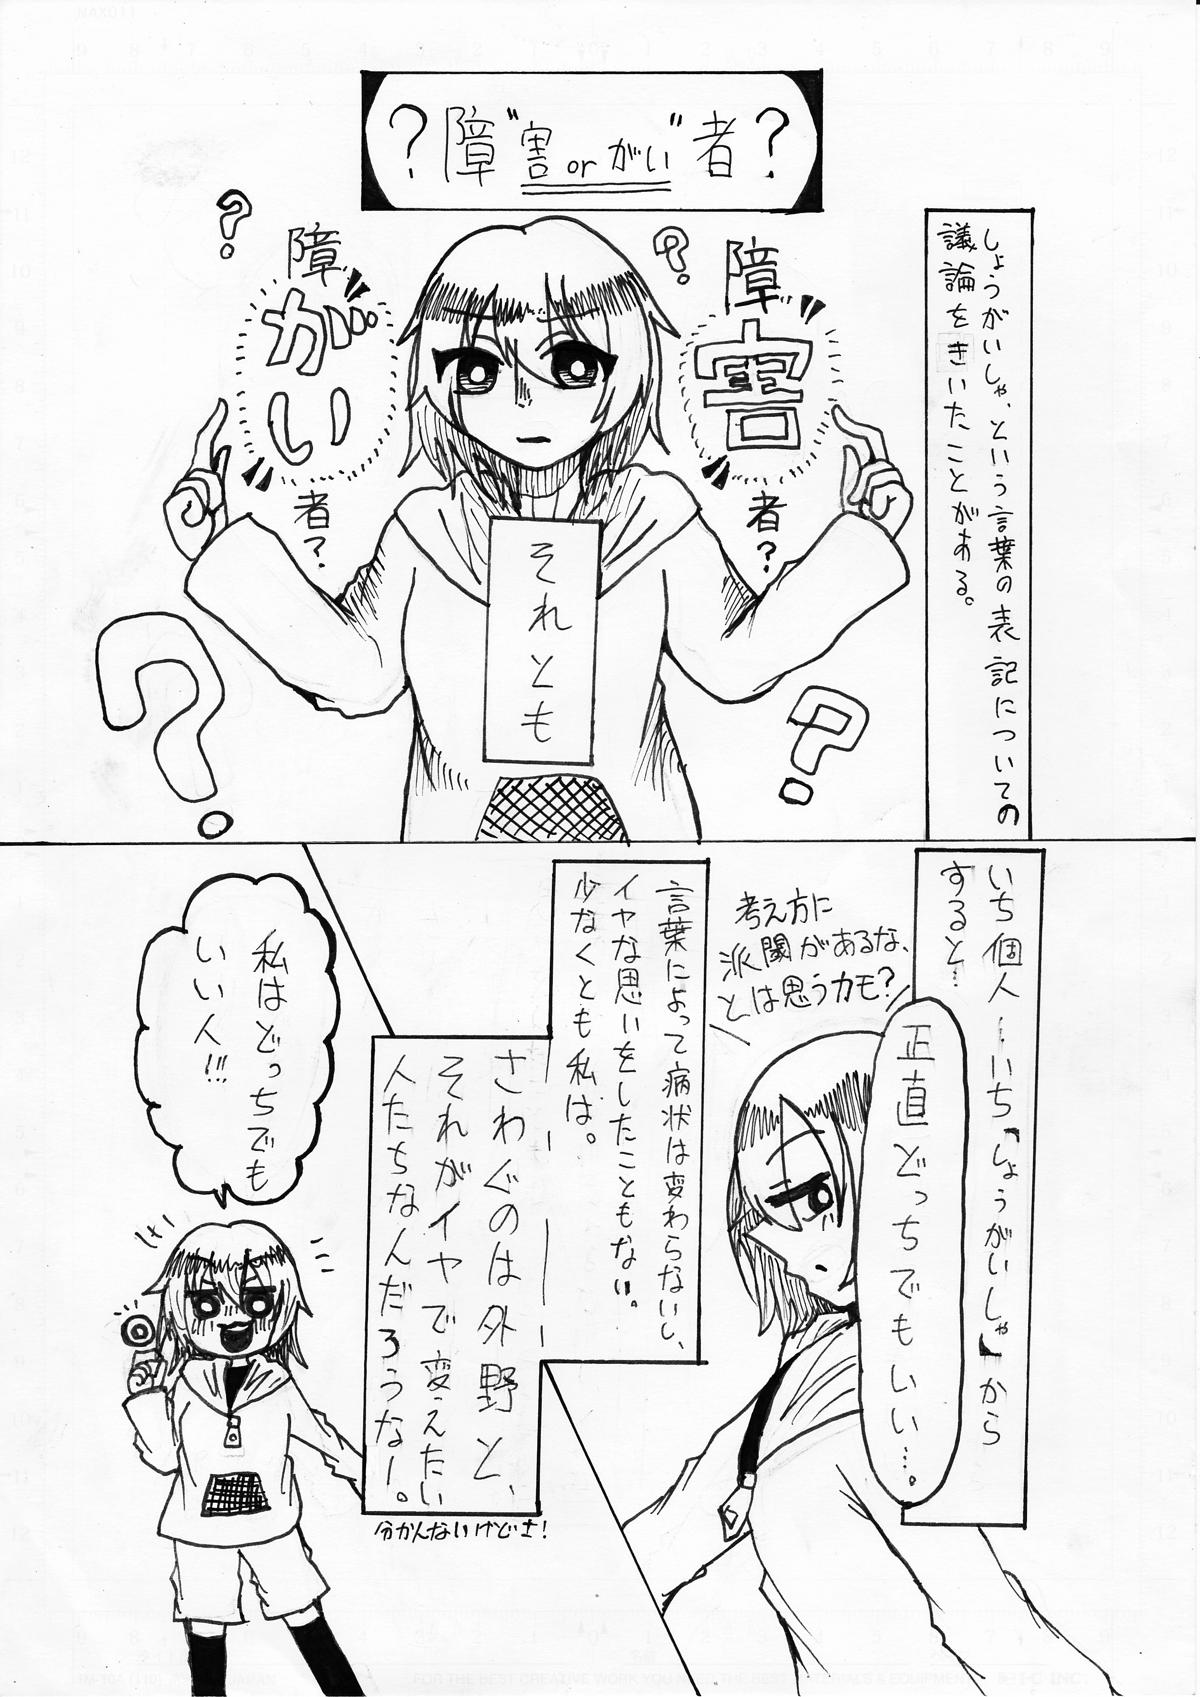 ？障"害orがい"者？
しょうがいしゃ、という言葉の表記についての
議論をきいたことがある。
障
害
者？
それとも
障
がい
者？
いち個人-いち「しょうがいしゃ」から
すると…
正直どっちでもいい…。
考え方に
派閥があるな、
とは思うカモ？
言葉によって病状は変わらないし、
イヤな思いをしたこともない。
少なくとも私は。
さわぐのは外野と、
それがイヤで変えたい
人たちなんだろうなー。
分かんないけどさ！
私はどっちでも
いい人!!!